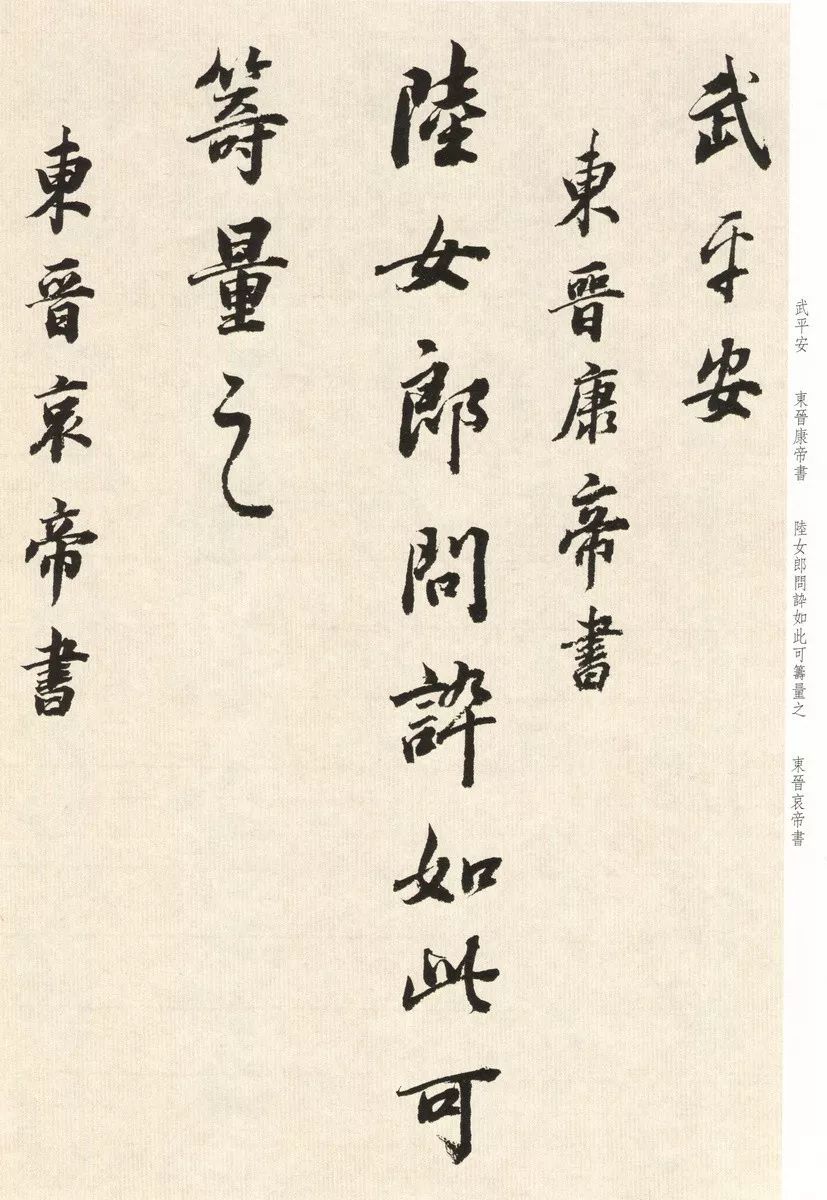 武平安
東晉康帝書
陸女郎問誶如此可
籌量之
東晉哀帝書
武平安 東晉康帝書 陸女郎問誶如此可籌量之 東晉哀帝書